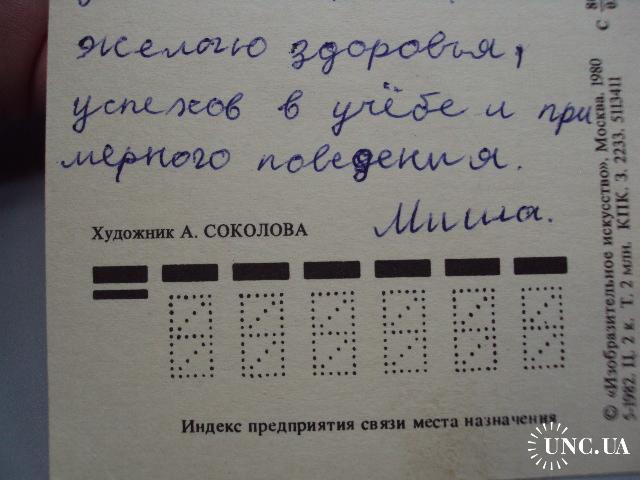 желаю здоровья,
успехов в учёбе и при
мерного поведения.
Миша.
Художник А. СОКОЛОВА
Индекс предприятия связи места назначения
© «Изобразительное искусство», Москва, 1980
5-1982. Ц. 2 к. Т. 2 млн. КПК. З. 2233. 5113411
UNC.UA